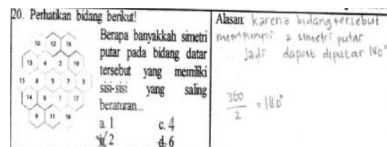 20. Perhatikan bidang berikut!
10 12 16
13 4 2 19
15 8 5 7 3
14 6 1 17
9 11 18
Berapa banyakkah simetri
putar pada bidang datar
tersebut yang memiliki
sisi-sisi yang saling
beraturan...
a. 1 c. 4
b. 2 d. 6
Alasan: karena bidang tersebut
mempunyai 2 simetri putar
Jadi dapat diputar 180°
360/2 = 180°